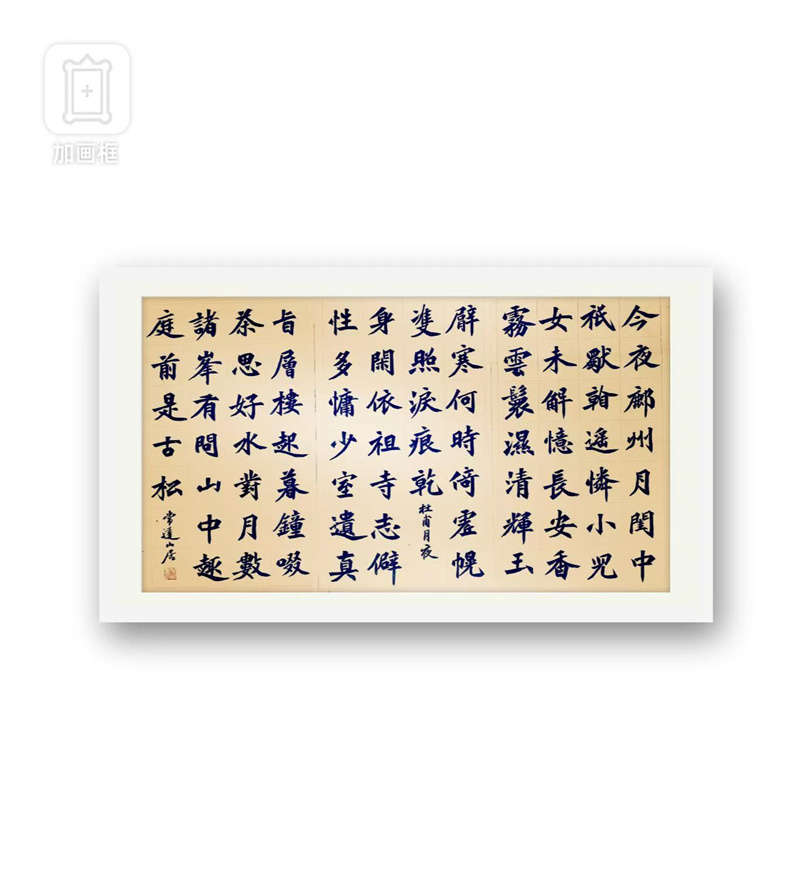 加画框
今夜鄜州月閨中
祇獨看遙憐小兒
女未解憶長安香
霧雲鬟濕清輝玉
臂寒何時倚虛幌
雙照淚痕乾
杜甫月夜
身閑依祖寺志僻
性多慵少室遺真
旨層樓起暮鐘啜
茶思好水對月數
諸峯有問山中趣
庭前是古松
常達山居